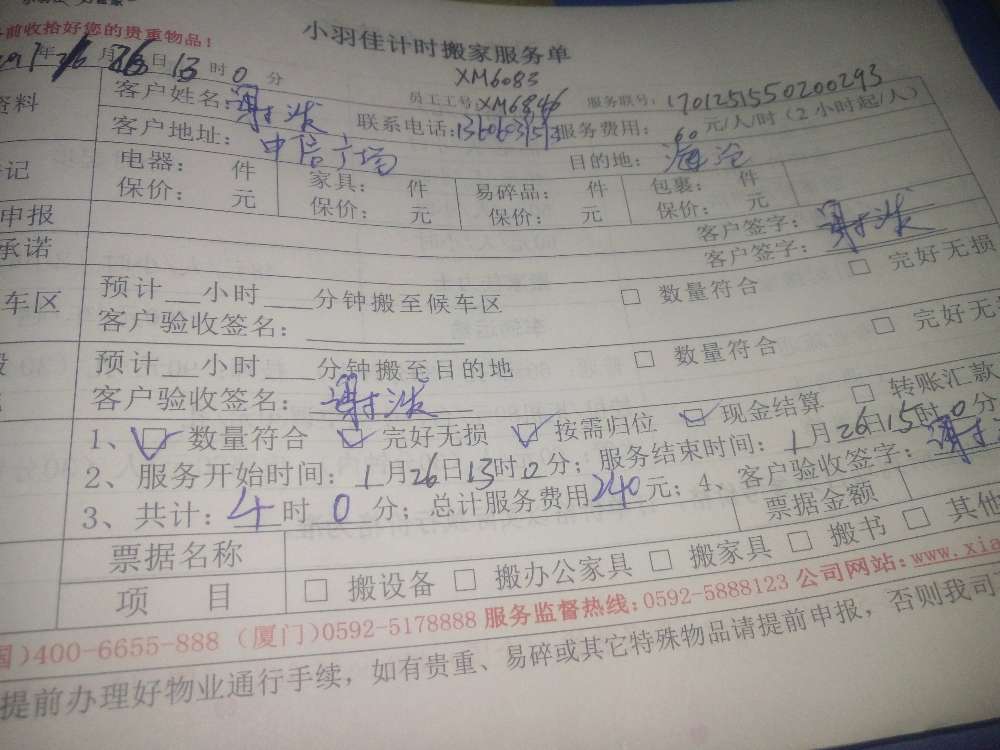 前收拾好您的贵重物品！
小羽佳计时搬家服务单
XM6083
年 月 26日 13时 0 分
员工工号：XM6846 服务联号：1701251550200293
资料 客户姓名： 联系电话： 服务费用：60 元/人/时（2小时起/人）
客户地址：中信广场 目的地：海沧
记 电器： 件 家具： 件 易碎品： 件 包裹： 件
保价： 元 保价： 元 保价： 元 保价： 元
申报 客户签字：
承诺 客户签字：
车区 预计 小时 分钟搬至候车区 □ 数量符合 □ 完好无损
客户验收签名：
预计 小时 分钟搬至目的地 □ 数量符合 □ 完好无
客户验收签名：
1、☑ 数量符合 ☑ 完好无损 ☑ 按需归位 ☑ 现金结算 □ 转账汇款
2、服务开始时间：1月26日13时0分；服务结束时间：1月26日15时0分
3、共计：4时0分；总计服务费用240元；4、客户验收签字：
票据名称 票据金额
项 目 □ 搬设备 □ 搬办公家具 □ 搬家具 □ 搬书 □ 其他
国)400-6655-888 (厦门)0592-5178888 服务监督热线:0592-5888123 公司网站:www.xia
提前办理好物业通行手续，如有贵重、易碎或其它特殊物品请提前申报，否则我司